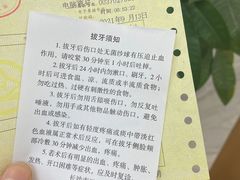 电脑票号
2021年9月13日
拔牙须知
1. 拔牙后伤口处无菌纱球有压迫止血
作用，请咬紧 30 分钟至 1 小时后吐掉。
2. 拔牙后 24 小时内勿漱口、刷牙，2 小
时后可进食温、凉、流质或半流质食物；
勿吃过热、过硬的刺激性食物。
3. 拔牙后勿用舌舔吸伤口、勿反复吐
唾液、勿用手或其他物品触动伤口，避免
出血或感染。
4. 拔牙后如有轻度疼痛或痰中带淡红
色血液属正常术后反应，可在拔牙侧脸颊
部冷敷 30 分钟减少出血、疼痛。
5. 若术后有明显的出血、疼痛、肿胀、
发热、开口困难等症状，应及时复诊。